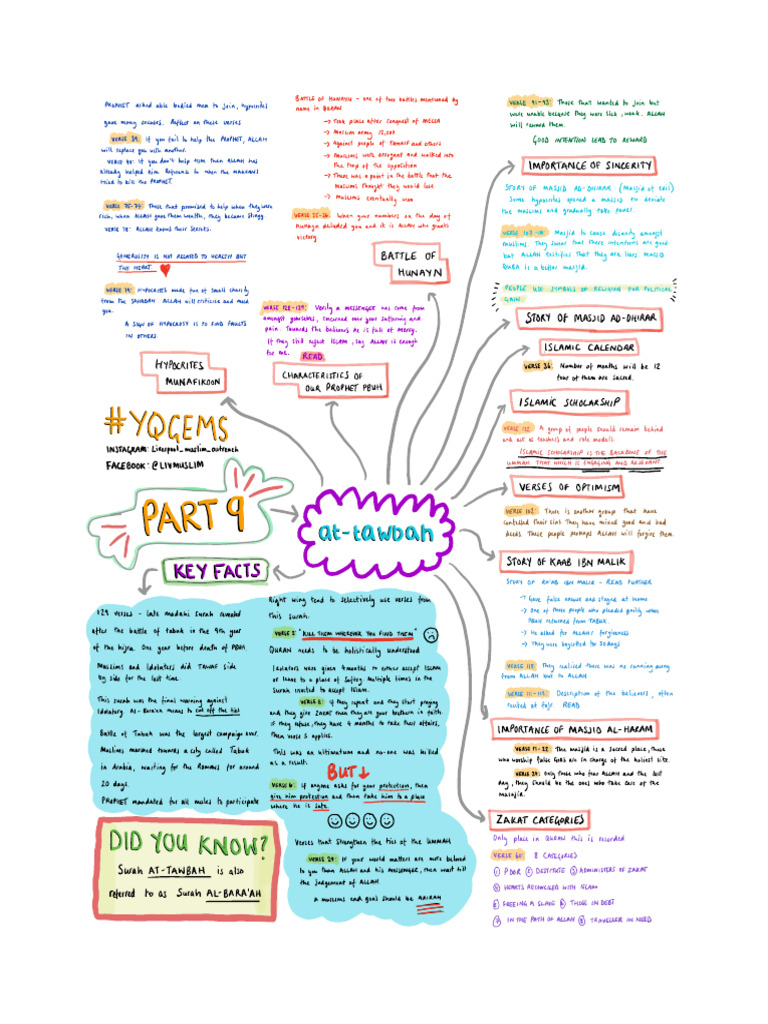 PROPHET asked able bodied men to join, hypocrites
gave many excuses. Reflect on these verses
VERSE 39: If you fail to help the PROPHET, ALLAH
will replace you with another.
VERSE 40: If you don't help him then ALLAH has
already helped him. Reference to when the MAKKANS
tried to kill the PROPHET.
VERSE 75-77: Those that promised to help when they were
rich, when ALLAH gave them wealth, they became stingy.
VERSE 78: ALLAH knows their secrets.
GENEROSITY IS NOT RELATED TO WEALTH BUT
THE HEART.
VERSE 79: HYPOCRITES made fun of small charity
from the SAHABAH. ALLAH will criticise and mock
you.
A SIGN OF HYPOCRISY IS TO FIND FAULTS
IN OTHERS.
HYPOCRITES
MUNAFIKOON
BATTLE OF HUNAYN - one of two battles mentioned by
name in QURAN
→ Took place after conquest of MECCA
→ Muslim army 12,000
→ Against people of TAWAIF and others
→ Muslims were arrogant and walked into
the trap of the opposition
→ There was a point in the battle that the
muslims thought they would lose
→ Muslims eventually won
VERSE 25-26: When your numbers on the day of
HUNAYN deluded you and it is ALLAH who grants
victory.
BATTLE OF
HUNAYN
VERSE 128-129: Verily a MESSENGER has come from
amongst yourselves, concerned over your suffering and
pain. Towards the believers he is full of mercy.
If they still reject ISLAM, say ALLAH is enough
for me. READ
CHARACTERISTICS OF
OUR PROPHET PBUH
VERSE 91-93: Those that wanted to join but
were unable because they were sick, weak. ALLAH
will reward them.
GOOD INTENTION LEAD TO REWARD
IMPORTANCE OF SINCERITY
STORY OF MASJID AD-DHIRAR (Masjid of evil)
Some hypocrites opened a masjid to deviate
the muslims and gradually take power.
VERSE 107-110: Masjid to cause disunity amongst
muslims. They swear that there intentions are good
but ALLAH testifies that they are liars. MASJID
QUBA is a better masjid.
PEOPLE USE SYMBOLS OF RELIGION FOR POLITICAL
GAIN.
STORY OF MASJID AD-DHIRAR
ISLAMIC CALENDAR
VERSE 36: Number of months will be 12
four of them are sacred.
ISLAMIC SCHOLARSHIP
VERSE 122: A group of people should remain behind
and act as teachers and role models.
ISLAMIC SCHOLARSHIP IS THE BACKBONE OF THE
UMMAH THAT WHICH IS ENGAGING AND RELEVANT.
VERSES OF OPTIMISM
VERSE 102: There is another groups that have
controlled their sins. They have mixed good and bad
deeds. These people perhaps ALLAH will forgive them.
STORY OF KAAB IBN MALIK
STORY OF KA'AB IBN MALIK - READ FURTHER
→ Gave false answer and stayed at home
→ One of three people who pleaded guilty when
PBUH returned from TABUK.
→ He asked for ALLAH'S forgiveness
→ They were boycotted for 50 days
VERSE 118: They realised there was no running away
from ALLAH but to ALLAH.
VERSE 111-112: Description of the believers, often
READ
IMPORTANCE OF MASJID AL-HARAM
VERSE 17-22: The masjid is a sacred place, those
who worship false GODS are in charge of the holiest site.
Only those who fear ALLAH and the last
day, they should be the ones who take care of the
masajid.
ZAKAT CATEGORIES
Only place in QURAN this is recorded
VERSE 60: 8 CATEGORIES
① POOR ② DESTITUTE ③ ADMINISTERS OF ZAKAT
④ HEARTS RECONCILED WITH ISLAM
⑤ FREEING A SLAVE ⑥ THOSE IN DEBT
⑦ IN THE PATH OF ALLAH ⑧ TRAVELLER IN NEED
#YQGEMS
INSTAGRAM: Liverpool_muslim_outreach
FACEBOOK: @LIVMUSLIM
PART 9
at-tawbah
KEY FACTS
129 verses - late madani surah revealed
after the battle of tabuk in the 9th year
of the hijra. One year before death of PBUH
Muslims and Idolaters did TAWAF side
by side for the last time.
This surah was the final warning against
Idolatory. Al-Bara'ah means to cut off the ties
Battle of Tabuk was the largest campaign ever.
Muslims marched towards a city called Tabuk
in Arabia, waiting for the Romans for around
20 days.
PROPHET mandated for all males to participate
Right wing tend to selectively use verses from
this surah.
VERSE 5: "KILL THEM WHEREVER YOU FIND THEM"
QURAN needs to be holistically understood
Idolaters were given 4 months to either accept Islam
or leave to a place of safety. Multiple times in the
surah invited to accept Islam.
If they repent and they start praying
and they give ZAKAT then they are your brothers in faith.
If they refuse, they have 4 months to take their affairs,
Then verse 5 applies.
This was an ultimatum and no-one was killed
as a result.
BUT↓
VERSE 6: If anyone asks for your protection, then
give him protection and then take him to a place
where he is safe.
Verses that strengthen the ties of the UMMAH
VERSE 24: If your world matters are more beloved
to you than ALLAH and his MESSENGER, then wait till
the judgement of ALLAH
A muslims end goal should be AKIRAH
DID YOU KNOW?
Surah AT-TAWBAH is also
referred to as Surah AL-BARA'AH